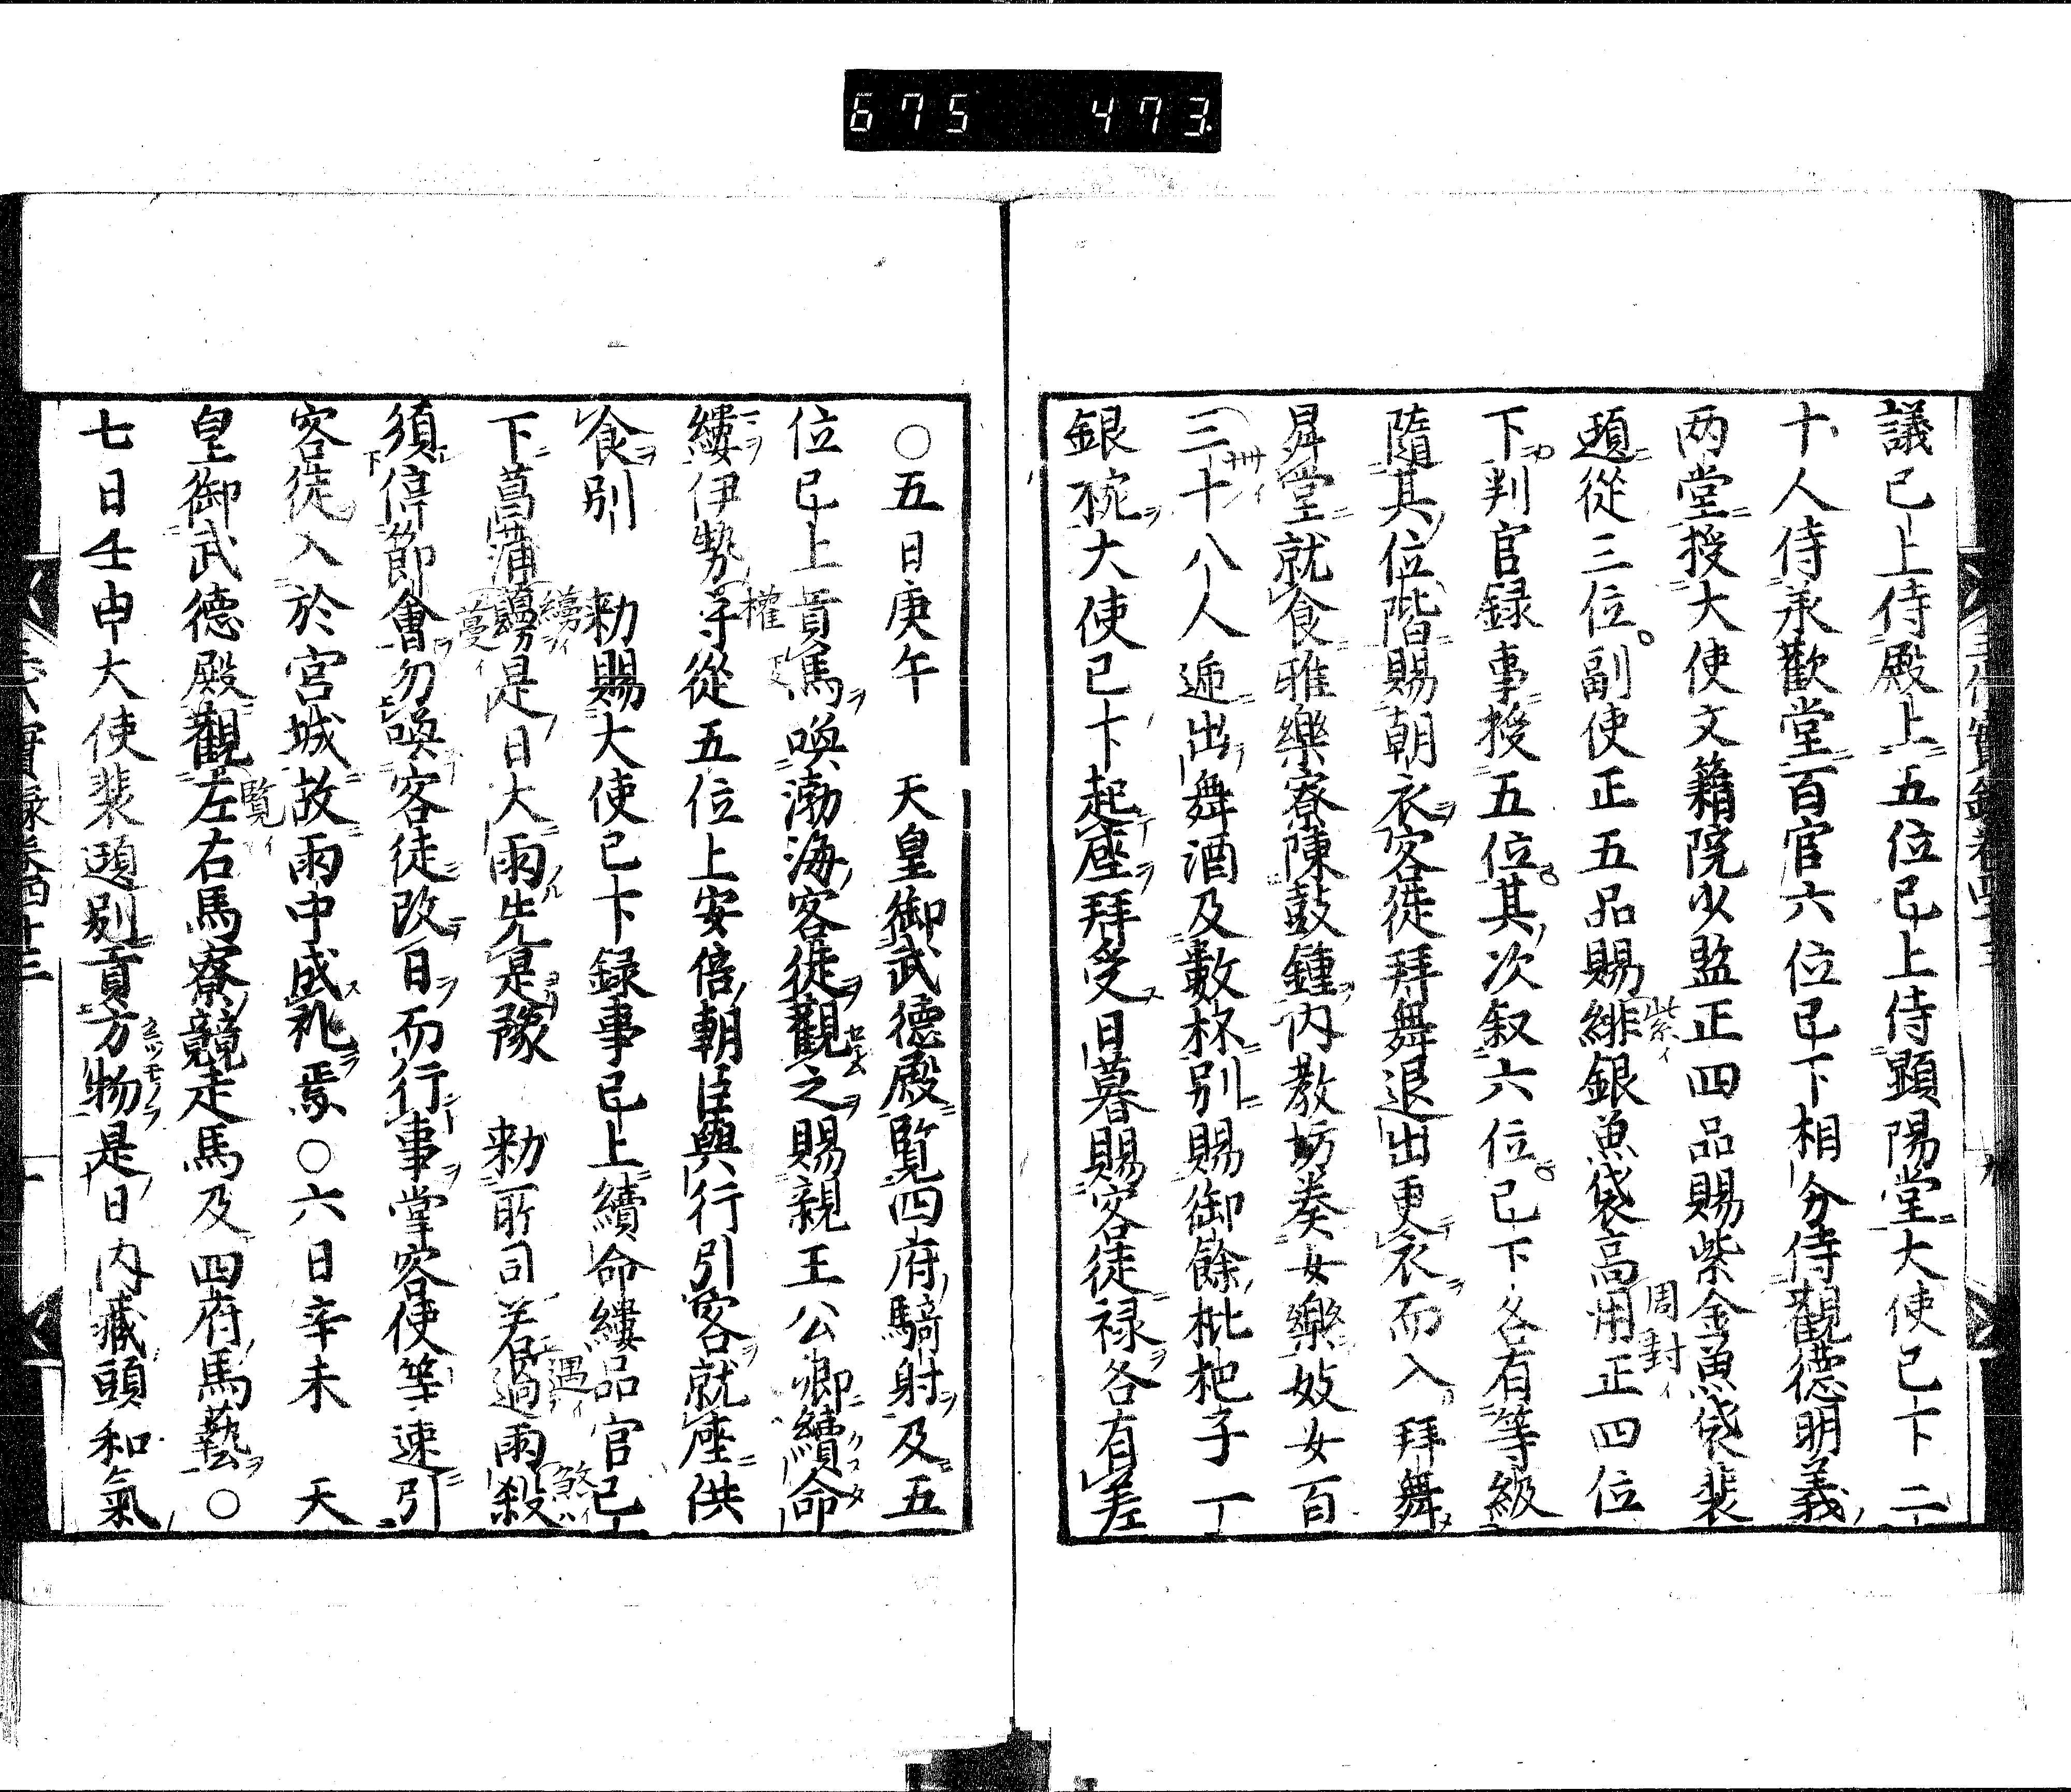 675 473
議已上侍殿上五位已上侍顕陽堂大使已下二
十人侍承歡堂百官六位已下相分侍觀德明義
両堂授大使文籍院少監正四品賜紫金魚袋裴
頲從三位副使正五品賜緋銀魚袋高用正四位
下判官録事授五位其次叙六位已下各有等級
隨其位階賜朝衣客徒拜舞退出更衣而入拜舞
昇堂就食雅樂寮陳鼓鍾内教坊奏女樂妓女百
三十八人遞出舞酒及數杯別賜御餘枇杷子一
銀椀大使已下起座拜受日暮賜客徒禄各有差
○五日庚午 天皇御武德殿覧四府騎射及五
位已上貢馬喚渤海客徒觀之賜親王公卿續命
縷伊勢守從五位上安倍朝臣興行引客就座供
食別 勅賜大使已下録事已上續命縷品官已
下菖蒲蘰是日大雨先是豫 勅所司若過雨殺
須停節會勿喚客徒改日而行事掌客使等速引
客徒入於宮城故雨中成礼焉○六日辛未 天
皇御武德殿觀左右馬寮競走馬及四府馬藝○
七日壬申大使裴頲別貢方物是日内藏頭和氣